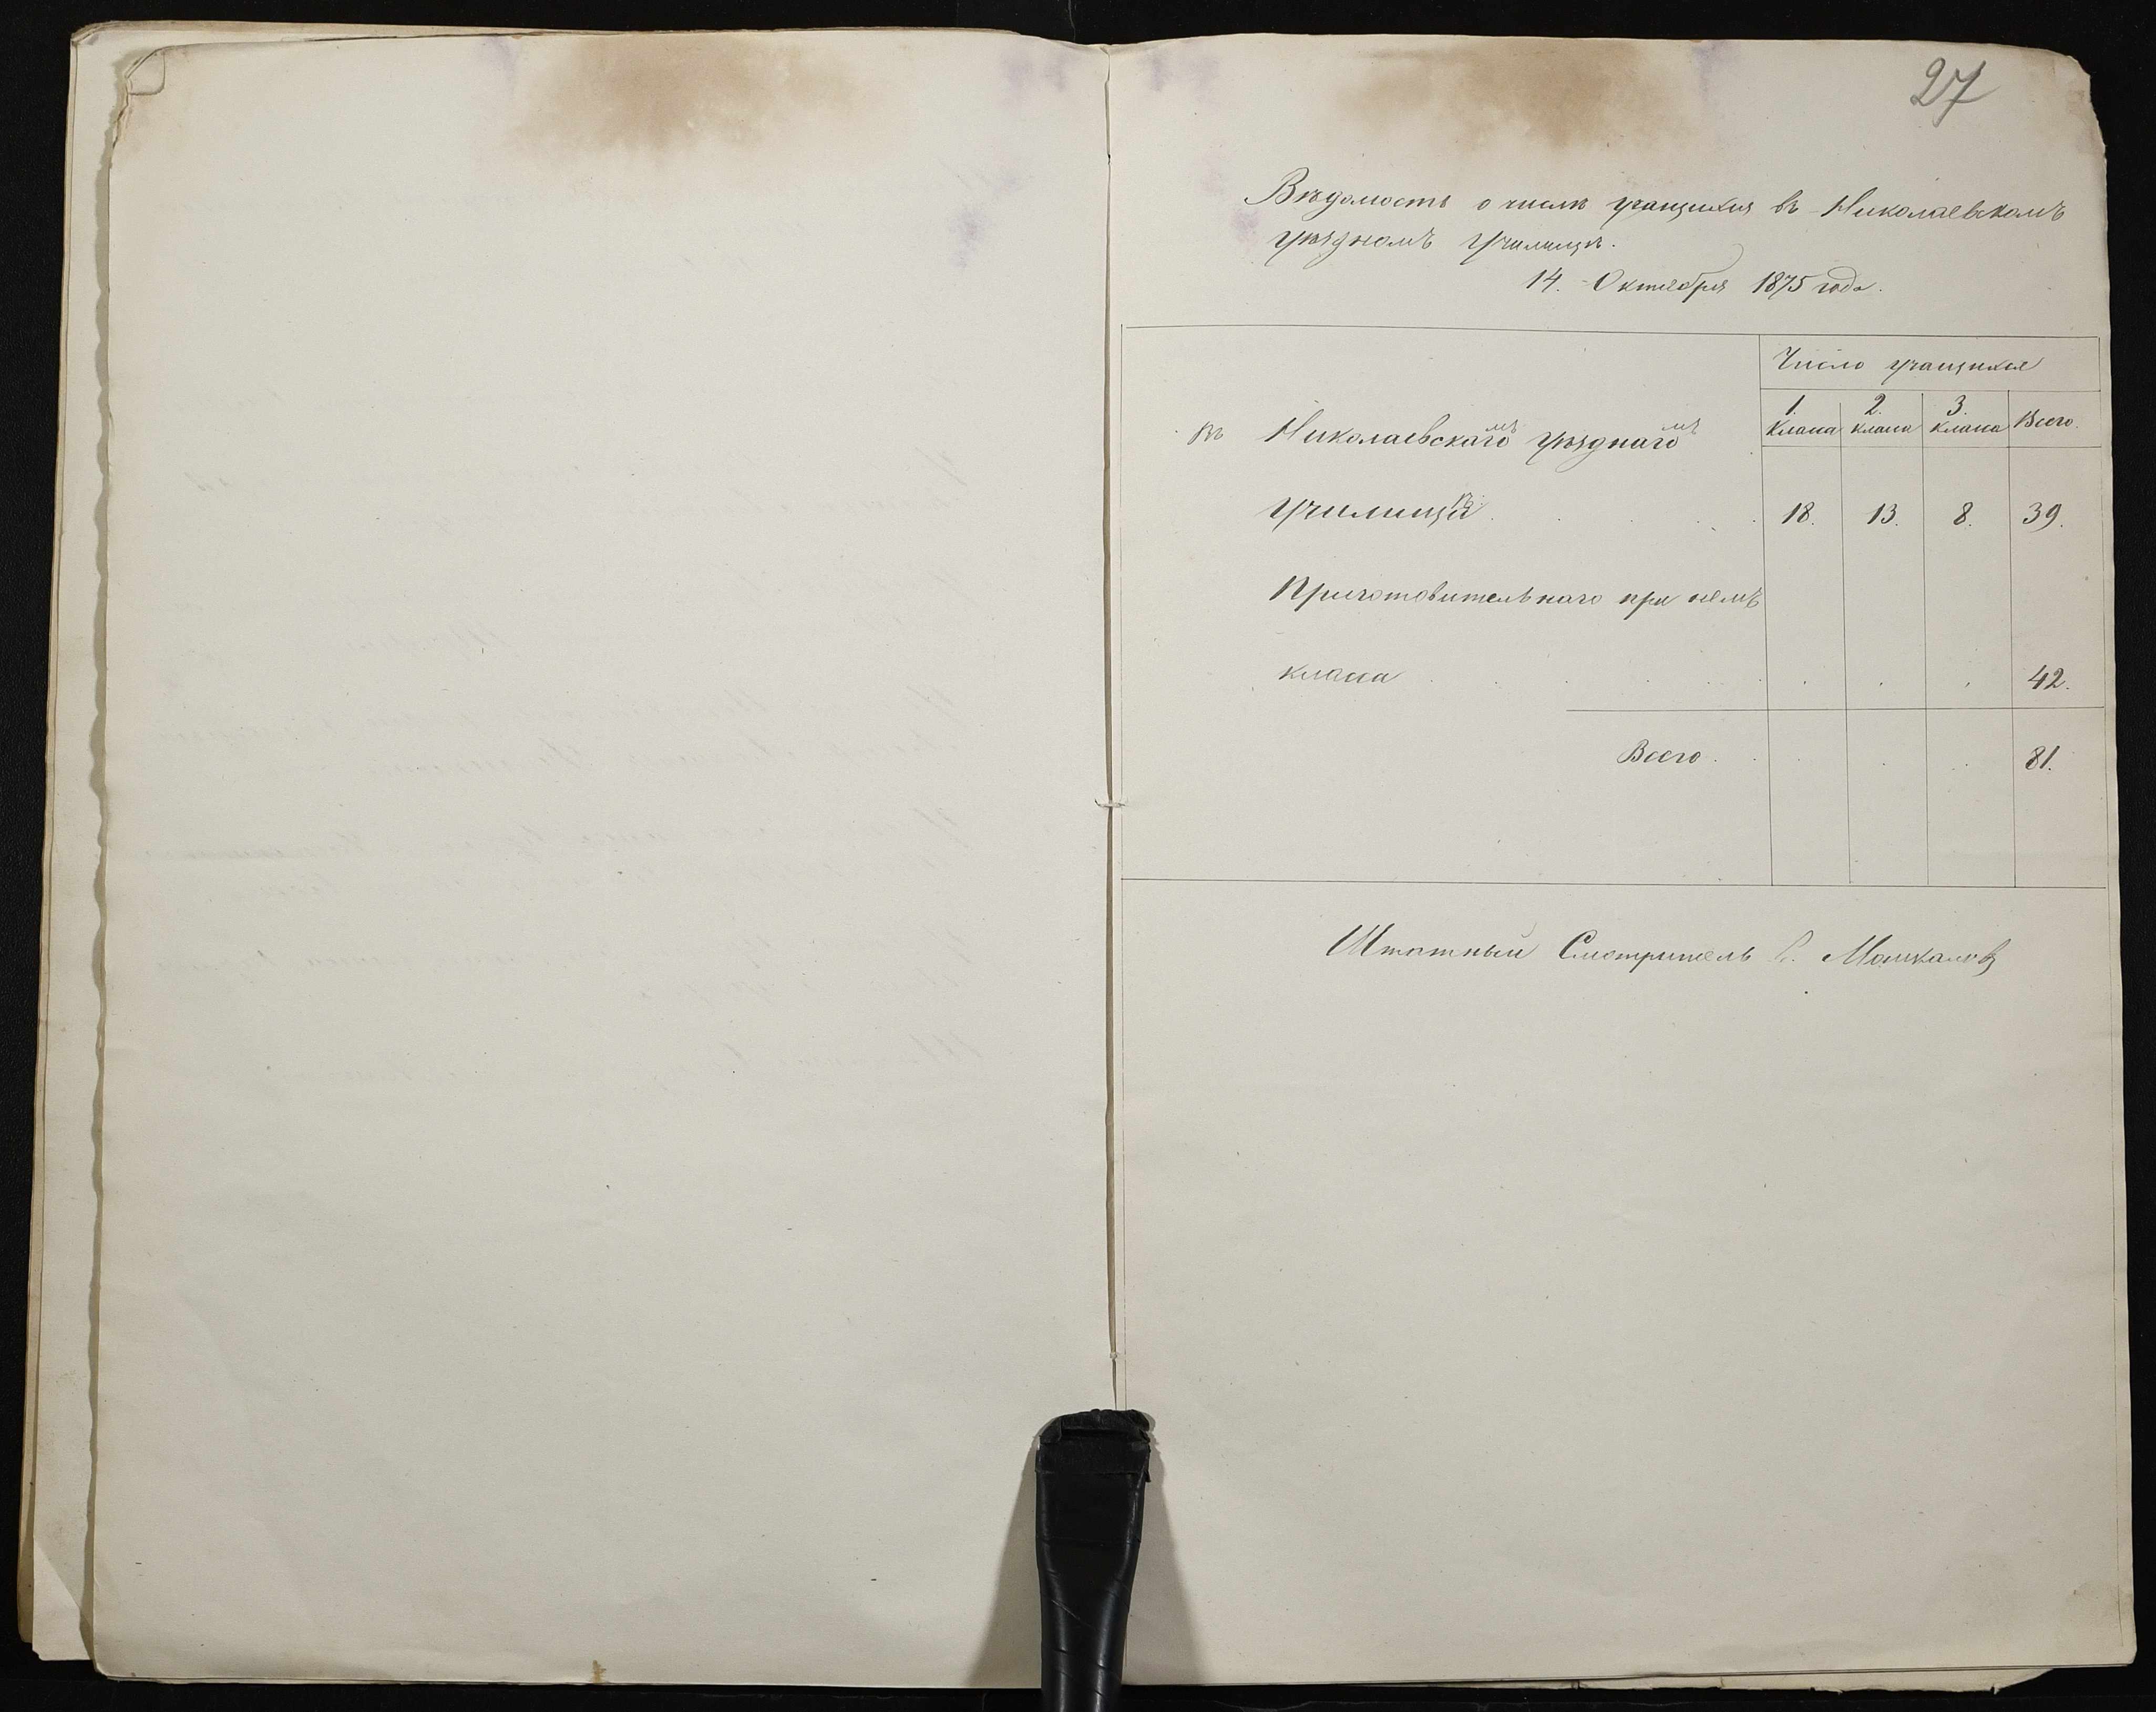 27
Вѣдомость о числѣ учащихся въ Николаевскомъ
уѣздномъ Училищѣ.
14. Октября 1875 года.
Число учащихся
1. Класса 2. класса 3. класса Всего.
въ Николаевскаго мъ уѣзднаго мъ
Училища ѣ 18. 13. 8. 39.
Приготовительнаго при немъ
класса 42.
Всего 81.
Штатный Смотритель